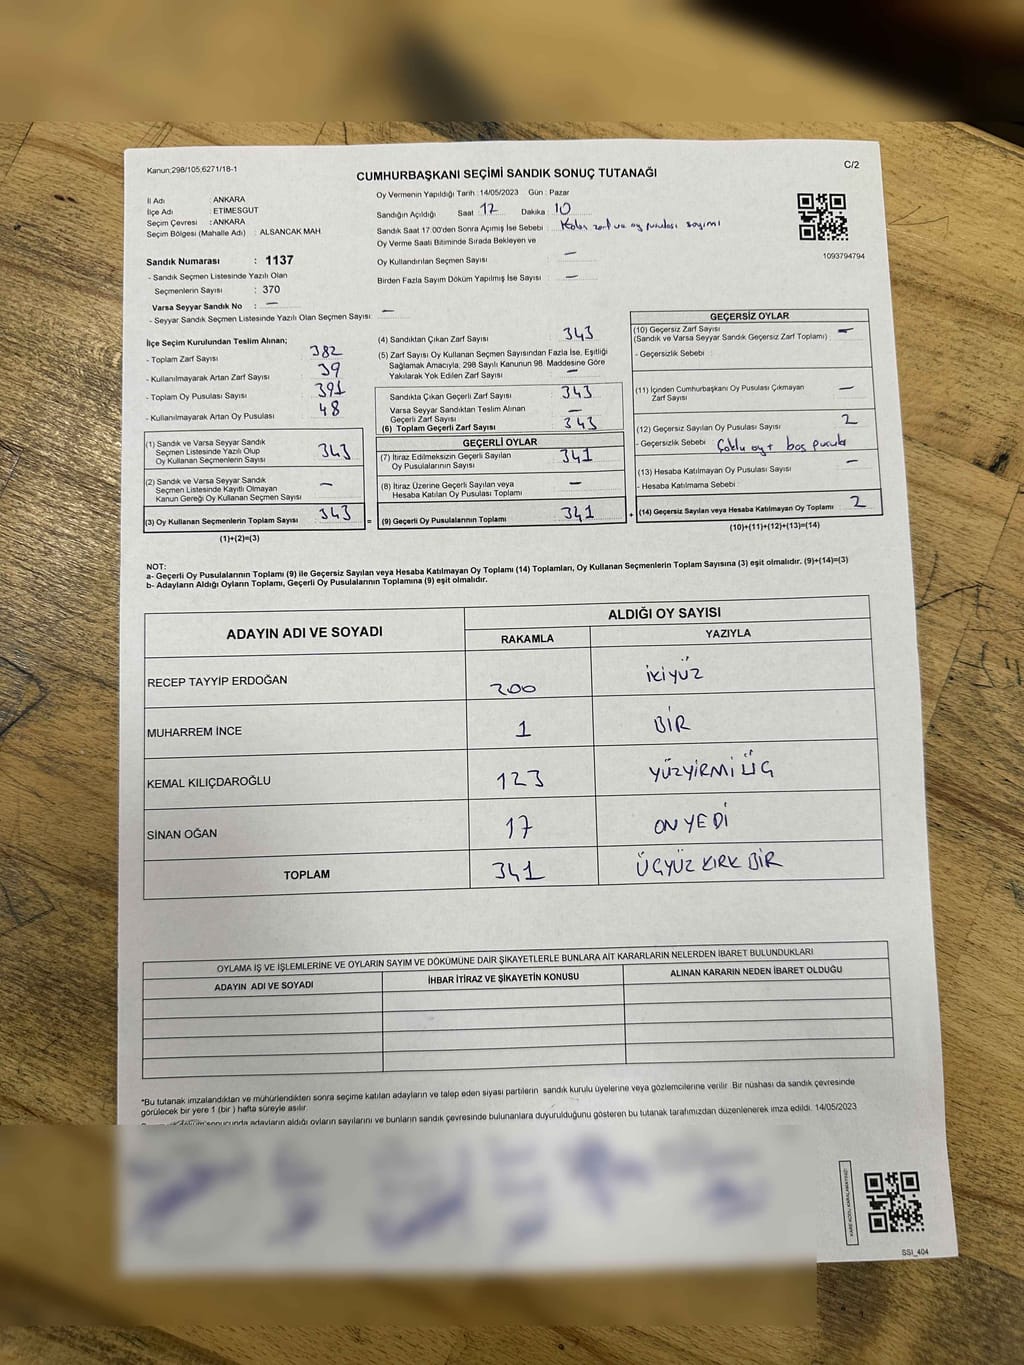 Kanun;298/105,6271/18-1
C/2
CUMHURBAŞKANI SEÇİMİ SANDIK SONUÇ TUTANAĞI
İl Adı : ANKARA
İlçe Adı : ETİMESGUT
Seçim Çevresi : ANKARA
Seçim Bölgesi (Mahalle Adı) : ALSANCAK MAH
Sandık Numarası : 1137
- Sandık Seçmen Listesinde Yazılı Olan
Seçmenlerin Sayısı : 370
Varsa Seyyar Sandık No : —
- Seyyar Sandık Seçmen Listesinde Yazılı Olan Seçmen Sayısı: —
Oy Vermenin Yapıldığı Tarih : 14/05/2023 Gün : Pazar
Sandığın Açıldığı Saat 17 Dakika 10
Sandık Saat 17.00'den Sonra Açımış İse Sebebi : Kalan zarf ve oy pusulası sayımı
Oy Verme Saati Bitiminde Sırada Bekleyen ve
Oy Kullandırılan Seçmen Sayısı : —
Birden Fazla Sayım Döküm Yapılmış İse Sayısı : —
1093794794
İlçe Seçim Kurulundan Teslim Alınan;
- Toplam Zarf Sayısı 382
- Kullanılmayarak Artan Zarf Sayısı 39
- Toplam Oy Pusulası Sayısı 391
- Kullanılmayarak Artan Oy Pusulası 48
(1) Sandık ve Varsa Seyyar Sandık
Seçmen Listesinde Yazılı Olup
Oy Kullanan Seçmenlerin Sayısı 343
(2) Sandık ve Varsa Seyyar Sandık
Seçmen Listesinde Kayıtlı Olmayan
Kanun Gereği Oy Kullanan Seçmen Sayısı —
(3) Oy Kullanan Seçmenlerin Toplam Sayısı 343 =
(1)+(2)=(3)
(4) Sandıktan Çıkan Zarf Sayısı 343
(5) Zarf Sayısı Oy Kullanan Seçmen Sayısından Fazla İse, Eşitliği
Sağlamak Amacıyla, 298 Sayılı Kanunun 98. Maddesine Göre
Yakılarak Yok Edilen Zarf Sayısı —
Sandıkta Çıkan Geçerli Zarf Sayısı 343
Varsa Seyyar Sandıktan Teslim Alınan
Geçerli Zarf Sayısı —
(6) Toplam Geçerli Zarf Sayısı 343
GEÇERLİ OYLAR
(7) İtiraz Edilmeksizin Geçerli Sayılan
Oy Pusulalarının Sayısı 341
(8) İtiraz Üzerine Geçerli Sayılan veya
Hesaba Katılan Oy Pusulası Toplamı —
(9) Geçerli Oy Pusulalarının Toplamı 341 +
GEÇERSİZ OYLAR
(10) Geçersiz Zarf Sayısı
(Sandık ve Varsa Seyyar Sandık Geçersiz Zarf Toplamı) : —
- Geçersizlik Sebebi :
(11) İçinden Cumhurbaşkanı Oy Pusulası Çıkmayan
Zarf Sayısı —
(12) Geçersiz Sayılan Oy Pusulası Sayısı 2
- Geçersizlik Sebebi : Çoklu oy + boş pusula
(13) Hesaba Katılmayan Oy Pusulası Sayısı —
- Hesaba Katılmama Sebebi :
(14) Geçersiz Sayılan veya Hesaba Katılmayan Oy Toplamı 2
(10)+(11)+(12)+(13)=(14)
NOT:
a- Geçerli Oy Pusulalarının Toplamı (9) ile Geçersiz Sayılan veya Hesaba Katılmayan Oy Toplamı (14) Toplamları, Oy Kullanan Seçmenlerin Toplam Sayısına (3) eşit olmalıdır. (9)+(14)=(3)
b- Adayların Aldığı Oyların Toplamı, Geçerli Oy Pusulalarının Toplamına (9) eşit olmalıdır.
ADAYIN ADI VE SOYADI ALDIĞI OY SAYISI
RAKAMLA YAZIYLA
RECEP TAYYİP ERDOĞAN 200 İKİYÜZ
MUHARREM İNCE 1 BİR
KEMAL KILIÇDAROĞLU 123 YÜZYİRMİ ÜÇ
SİNAN OĞAN 17 ON YEDİ
TOPLAM 341 ÜÇYÜZ KIRK BİR
OYLAMA İŞ VE İŞLEMLERİNE VE OYLARIN SAYIM VE DÖKÜMÜNE DAİR ŞİKAYETLERLE BUNLARA AİT KARARLARIN NELERDEN İBARET BULUNDUKLARI
ADAYIN ADI VE SOYADI İHBAR İTİRAZ VE ŞİKAYETİN KONUSU ALINAN KARARIN NEDEN İBARET OLDUĞU
*Bu tutanak imzalandıktan ve mühürlendikten sonra seçime katılan adayların ve talep eden siyasi partilerin sandık kurulu üyelerine veya gözlemcilerine verilir. Bir nüshası da sandık çevresinde
görülecek bir yere 1 (bir) hafta süreyle asılır.
sonucunda adayların aldığı oyların sayılarını ve bunların sandık çevresinde bulunanlara duyurulduğunu gösteren bu tutanak tarafımızdan düzenlenerek imza edildi. 14/05/2023
SSI_404